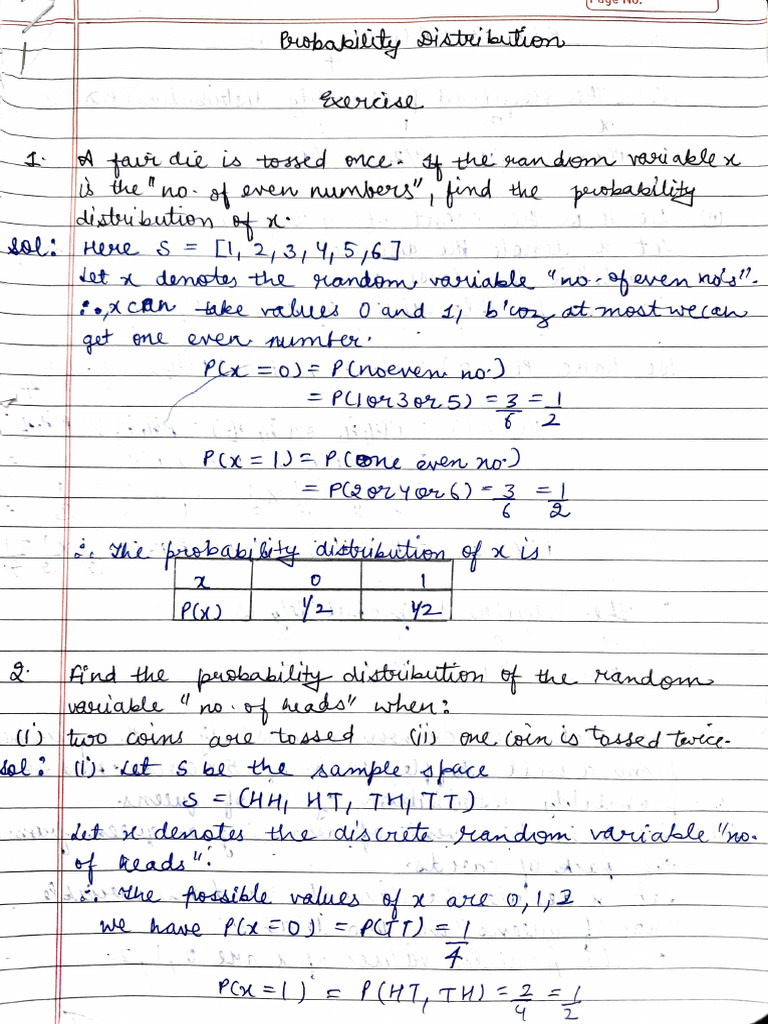 Page No.
Probability Distribution
Exercise
1. A fair die is tossed once. If the random variable x
is the "no. of even numbers", find the probability
distribution of x.
Sol: Here S = [1, 2, 3, 4, 5, 6]
Let x denotes the random variable "no. of even no's".
∴, x can take values 0 and 1, b'coz at most we can
get one even number.
P(x = 0) = P(no even no.)
= P(1 or 3 or 5) = 3/6 = 1/2
P(x = 1) = P(one even no.)
= P(2 or 4 or 6) = 3/6 = 1/2
∴ The probability distribution of x is:
x 0 1
P(x) 1/2 1/2
2. Find the probability distribution of the random
variable "no. of heads" when:
(i) two coins are tossed (ii) one coin is tossed twice.
Sol: (i). Let S be the sample space
S = (HH, HT, TH, TT)
Let x denotes the discrete random variable "no.
of heads".
∴ The possible values of x are 0, 1, 2
we have P(x = 0) = P(TT) = 1/4
P(x = 1) = P(HT, TH) = 2/4 = 1/2